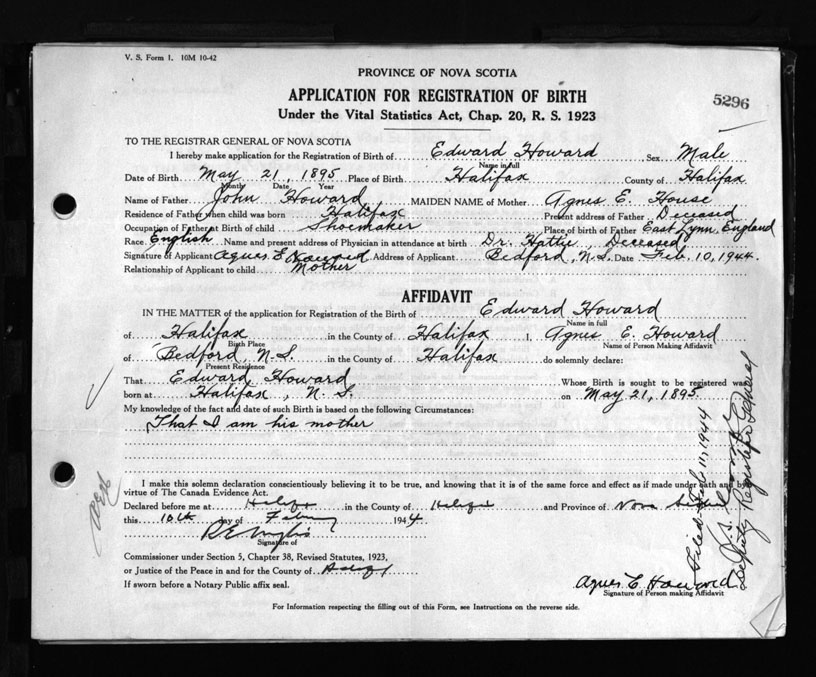 V. S. Form 1. 10M 10-42
PROVINCE OF NOVA SCOTIA
APPLICATION FOR REGISTRATION OF BIRTH
5296
Under the Vital Statistics Act, Chap. 20, R. S. 1923
TO THE REGISTRAR GENERAL OF NOVA SCOTIA
I hereby make application for the Registration of Birth of Edward Howard Sex Male
Name in full
Date of Birth May 21, 1895 Place of Birth Halifax County of Halifax
Month Date Year
Name of Father John Howard MAIDEN NAME of Mother Agnes E. House
Residence of Father when child was born Halifax Present address of Father Deceased
Occupation of Father at Birth of child Shoemaker Place of birth of Father East Lynn, England
Race English Name and present address of Physician in attendance at birth Dr. Hattie, Deceased
Signature of Applicant Agnes E Howard Address of Applicant Bedford, N.S. Date Feb. 10, 1944.
Relationship of Applicant to child Mother
AFFIDAVIT
IN THE MATTER of the application for Registration of the Birth of Edward Howard
Name in full
of Halifax in the County of Halifax I, Agnes E. Howard
Birth Place Name of Person Making Affidavit
of Bedford, N.S. in the County of Halifax do solemnly declare:
Present Residence
That Edward Howard Whose Birth is sought to be registered was
born at Halifax, N. S. on May 21, 1895.
My knowledge of the fact and date of such Birth is based on the following Circumstances:
That I am his mother
I make this solemn declaration conscientiously believing it to be true, and knowing that it is of the same force and effect as if made under oath and by
virtue of The Canada Evidence Act.
Declared before me at Halifax in the County of Halifax and Province of Nova Scotia
this 10th day of February 1944.
Signature of
Commissioner under Section 5, Chapter 38, Revised Statutes, 1923,
or Justice of the Peace in and for the County of Halifax
If sworn before a Notary Public affix seal.
Agnes E. Howard
Signature of Person making Affidavit
For Information respecting the filling out of this Form, see Instructions on the reverse side.
Filed Feb. 11, 1944
Deputy Registrar General